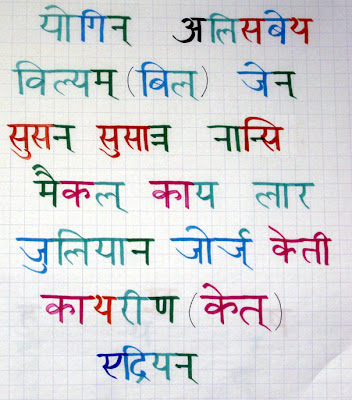 योगिन् अलिसबेय
विल्यम् (बिल) जेन
सुसन सुसान्न नान्सि
मैकल् काय लार
जुलियान जोर्ज् केती
कायरीण (केत्)
एद्रियन्